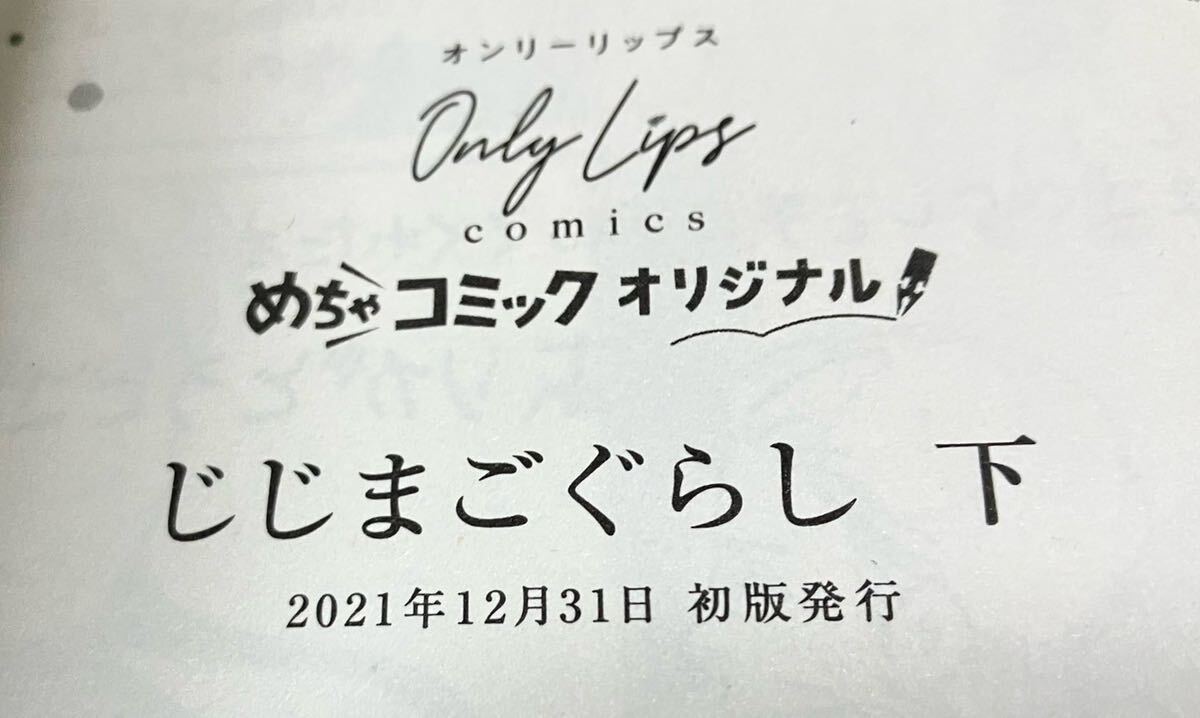 オンリーリップス
Only Lips
comics
めちゃコミック オリジナル
じじまごぐらし 下
2021年12月31日 初版発行